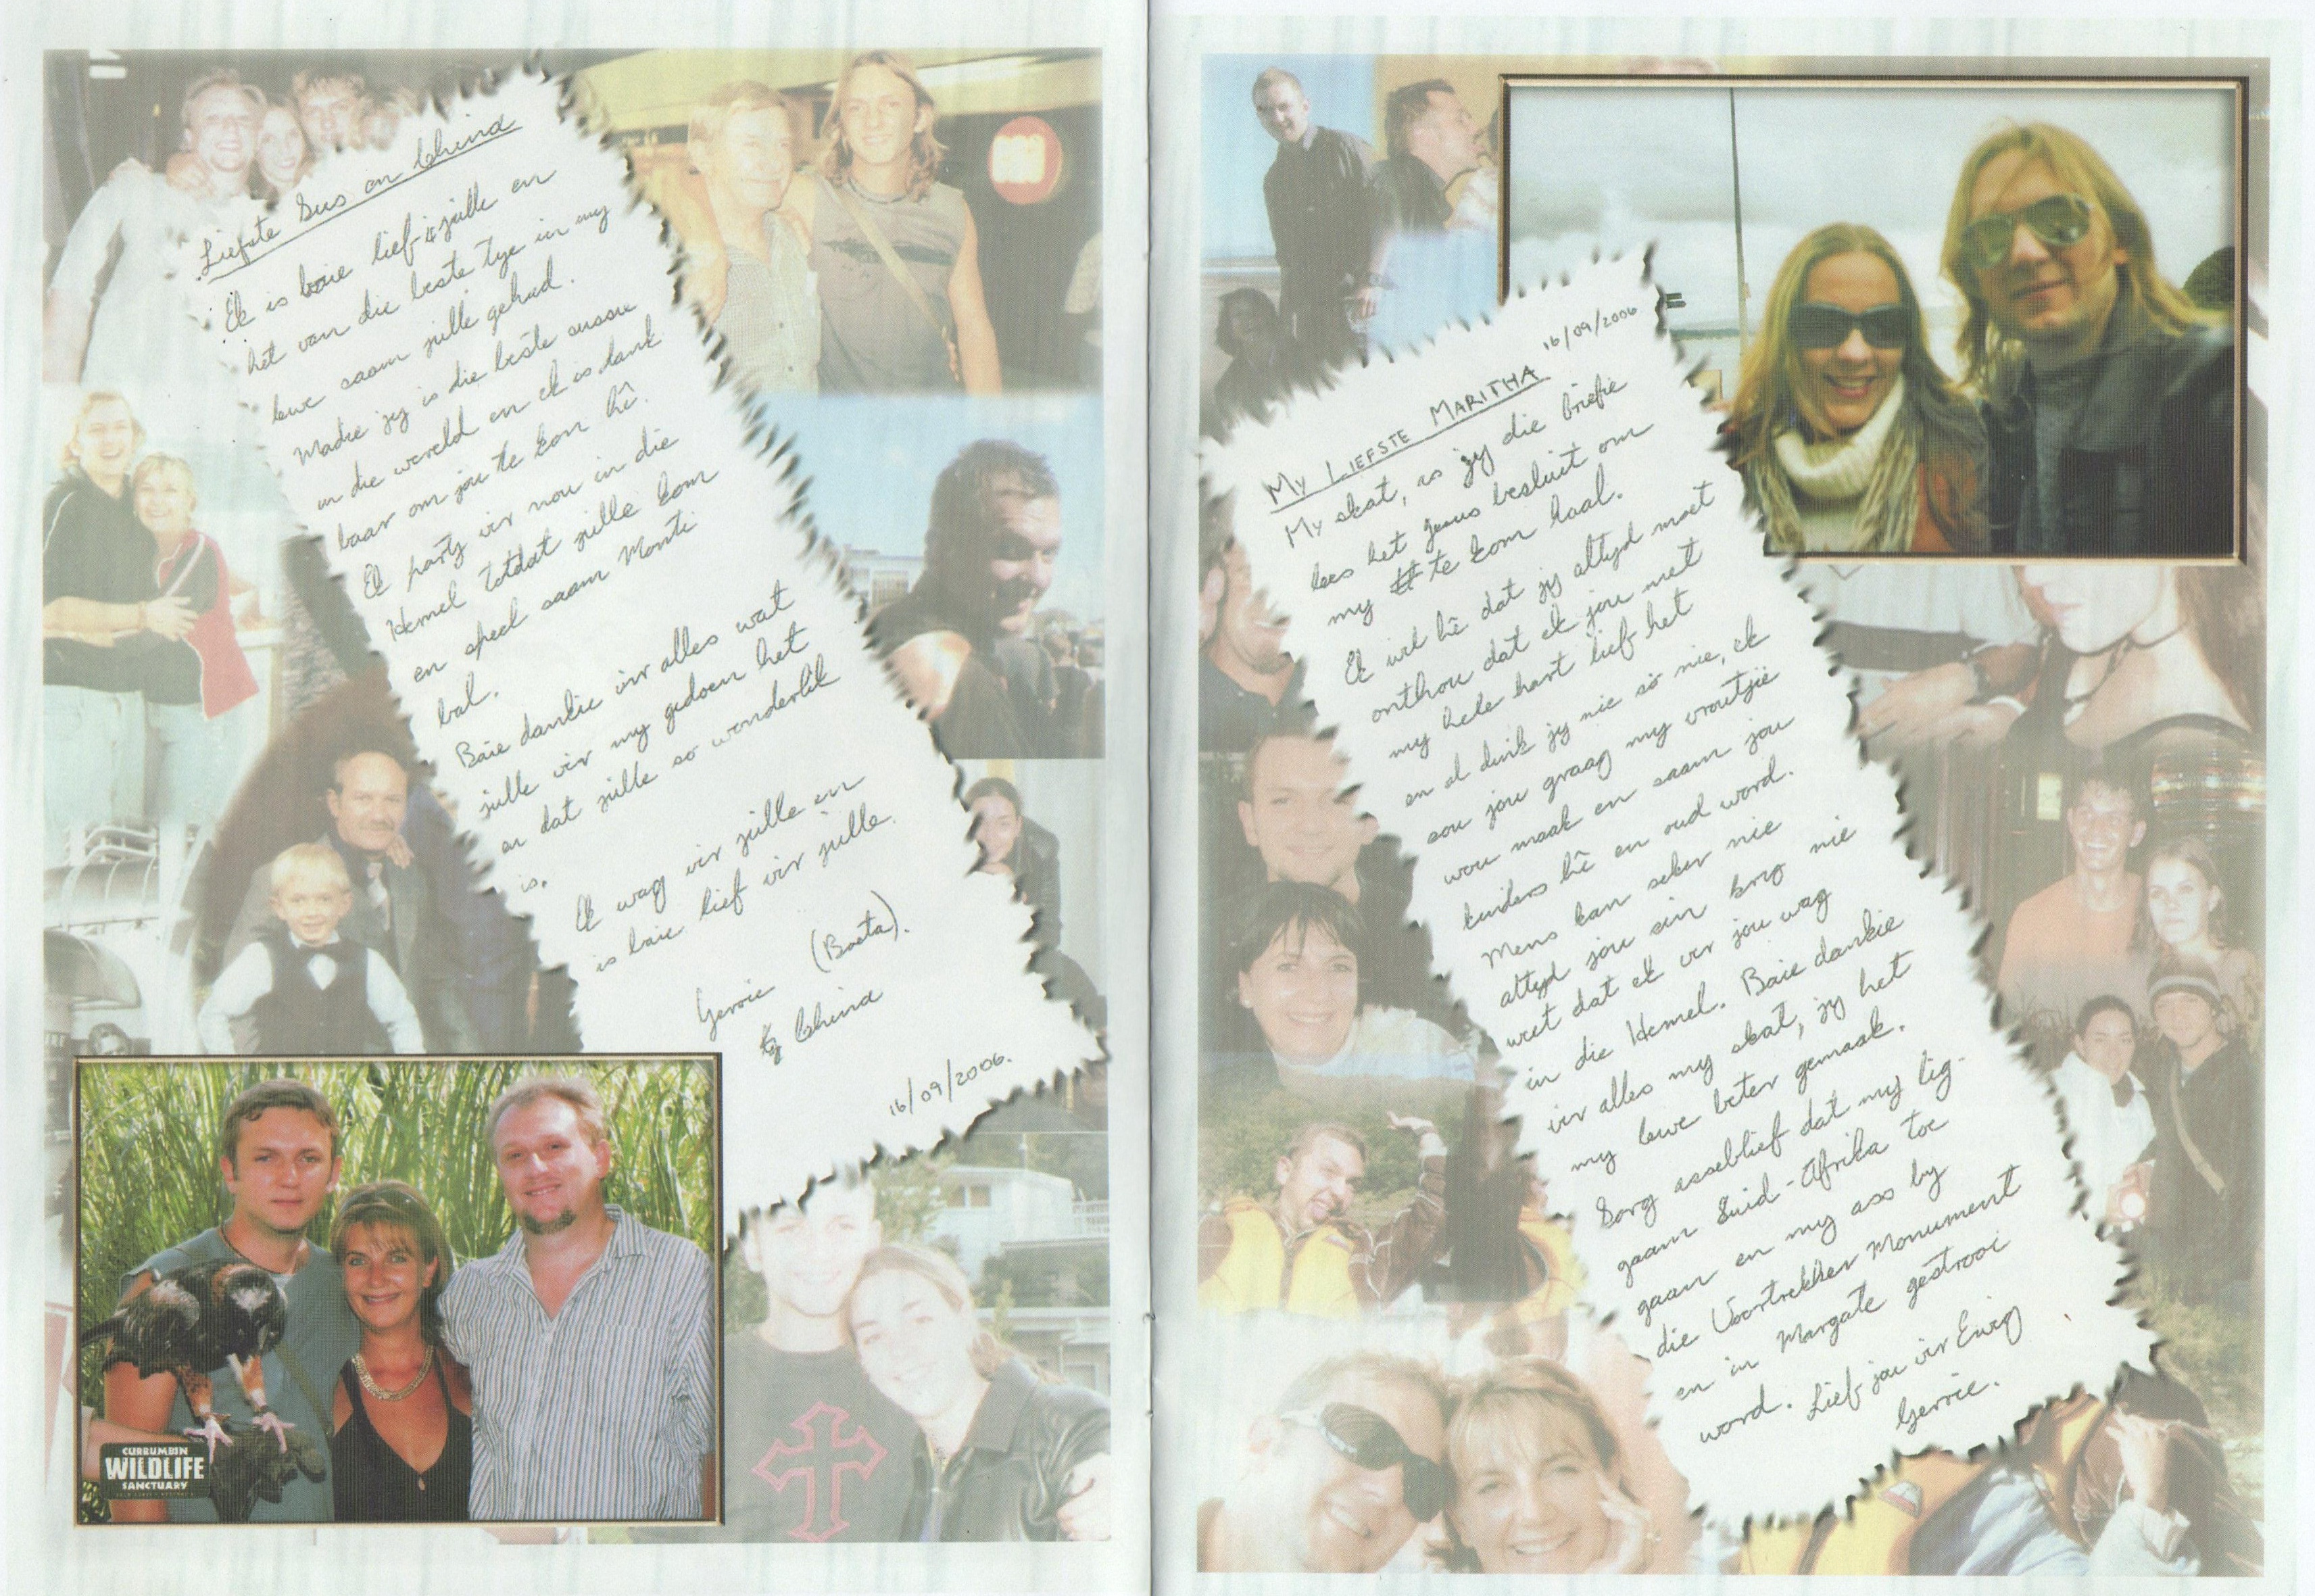 Liefste Sus en China
Ek is baie lief vir julle en
het van die beste tye in my
lewe saam julle gehad.
Madre jy is die beste sussie
in die wereld en ek is dank
baar om jou te kon hê.
Ek party vir nou in die
Hemel totdat julle kom
en speel saam Monti
bal.
Baie dankie vir alles wat
julle vir my gedoen het
en dat julle so wonderlik
is.
Ek wag vir julle en
is baie lief vir julle.
Gerrie (Boeta).
China
16/09/2006.
CURRUMBIN
WILDLIFE
SANCTUARY
16/09/2006
MY LIEFSTE MARITHA
My skat, as jy die briefie
lees het Jesus besluit om
my te kom haal.
Ek wil hê dat jy altyd moet
onthou dat ek jou met
my hele hart lief het
en al dink jy nie so nie, ek
sou jou graag my vroutjie
wou maak en saam jou
kinders hê en oud word.
Mens kan seker nie
altyd jou sin kry nie
weet dat ek vir jou wag
in die Hemel. Baie dankie
vir alles my skat, jy het
my lewe beter gemaak.
Sorg asseblief dat my lig-
gaam Suid-Afrika toe
gaan en my ass by
die Voortrekker Monument
en in Margate gestrooi
word. Lief jou vir Ewig
Gerrie.